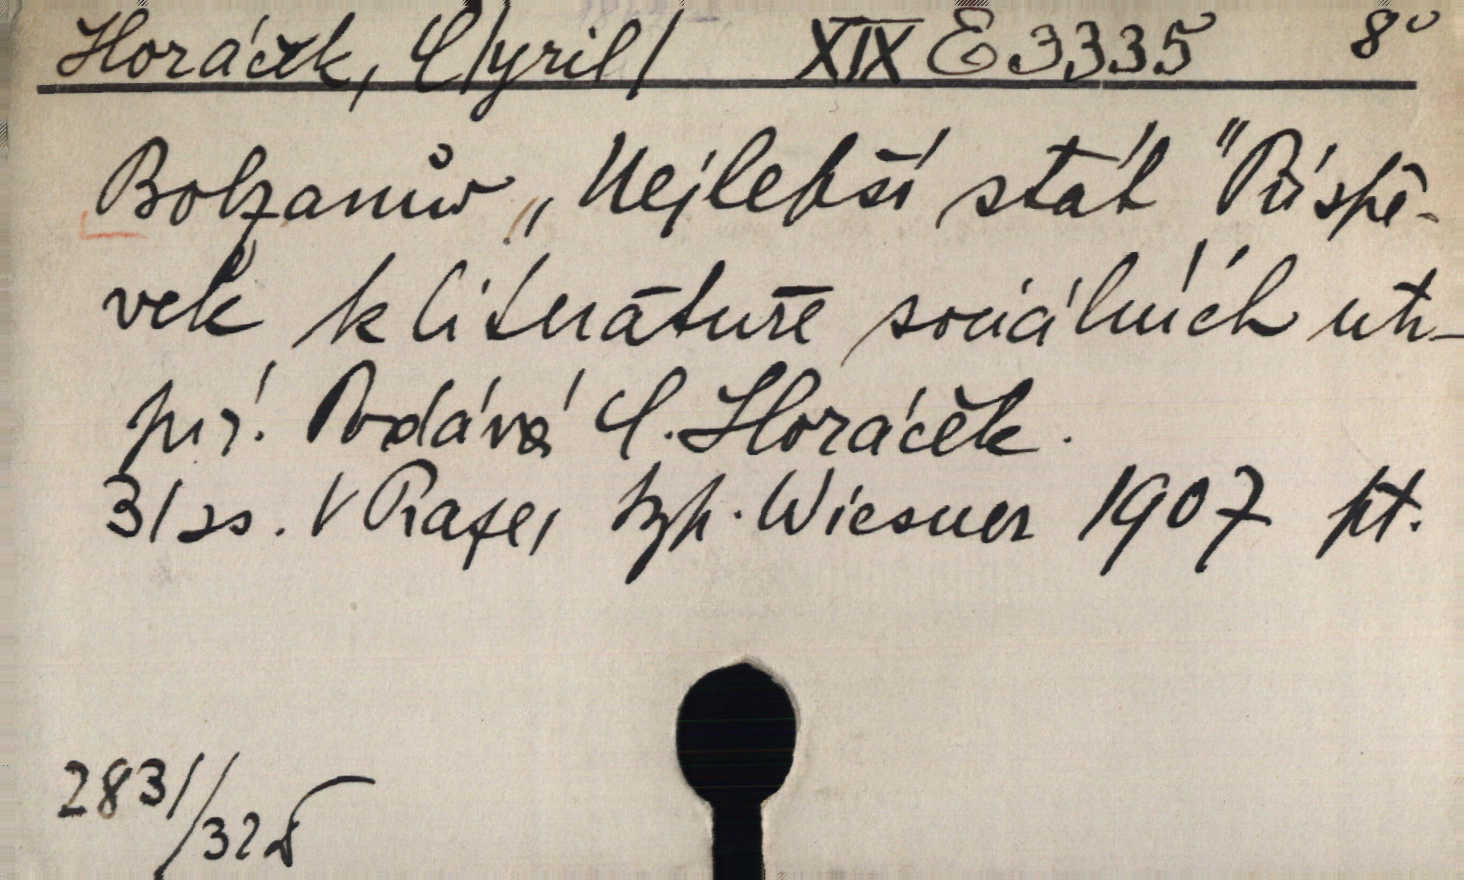 Horáček, C/yril/ XIX E 3335 8°
Bolzanův „Nejlepší stát" Příspě-
vek k literátuře sociálních uto-
pií. Podává C. Horáček.
31 ss. V Praze, typ. Wiesner 1907 pt.
2831/
/328